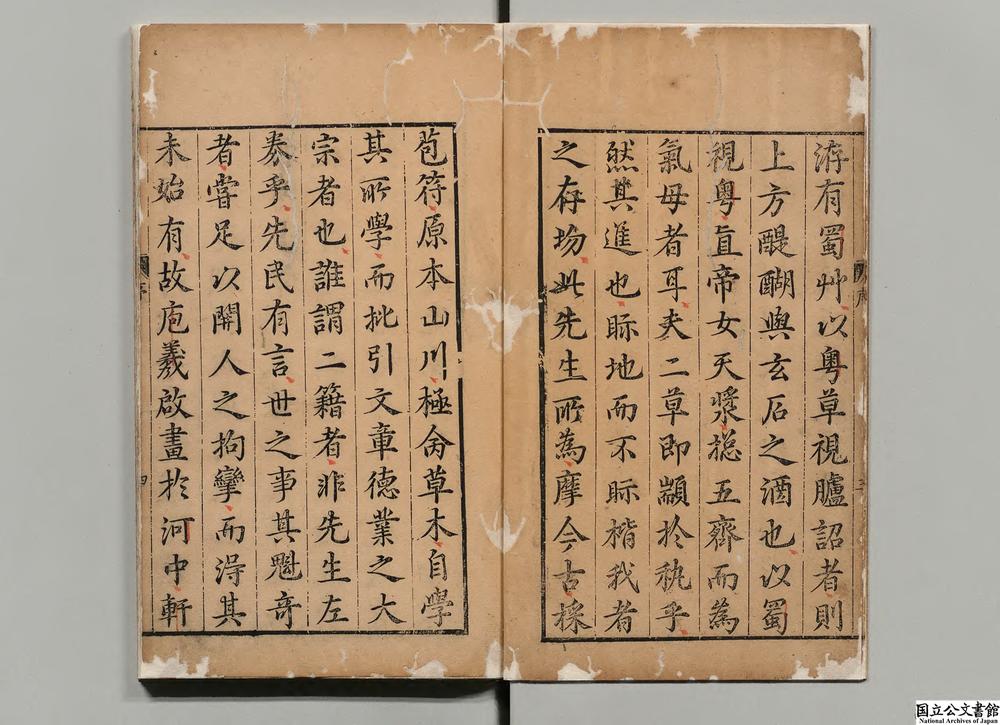 游有蜀艸以粤草視臚詔者則
上方醍醐與玄石之酒也以蜀
視粤直帝女天漿揔五齊而為
氣母者耳夫二草即顓於秇乎
然其進也眎地而不眎楷我者
之存場此先生所為摩今古採
苞符原本山川極命草木自學
其所學而批引文章德業之大
宗者也誰謂二籍者非先生左
券乎先民有言世之事其魁奇
者嘗足以開人之拘攣而淂其
未始有故庖羲啟畫於河中軒
序
四
国立公文書館
National Archives of Japan